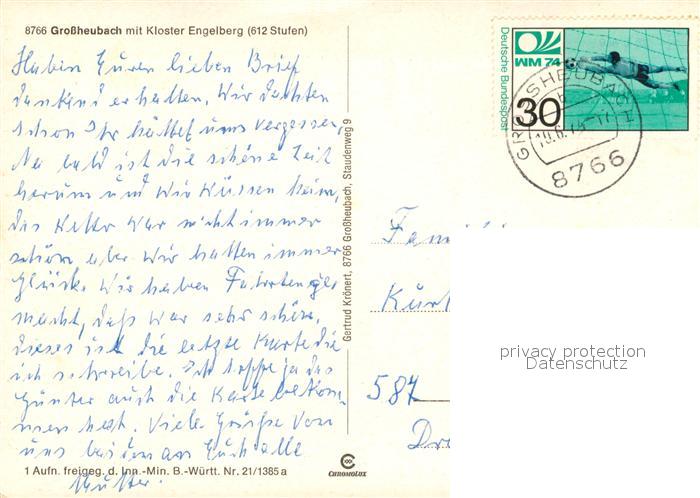 8766 Großheubach mit Kloster Engelberg (612 Stufen)
Haben Euren lieben Brief
dankend erhalten. Wir dachten
schon Ihr hättet uns vergessen.
Na bald ist die schöne Zeit
herum und wir müssen heim,
das Wetter war nicht immer
schön aber wir hatten immer
Glück. Wir haben Fahrten ge
macht, daß war sehr schön.
Dieses ist die letzte Karte die
ich schreibe. Ich hoffe ja das
Günter auch die Karte bekom-
men hat. Viele Grüße von
uns beiden an Euch alle
Mutter.
1 Aufn. freigeg. d. Inn.-Min. B.-Württ. Nr. 21/1385 a
Gertrud Krönert, 8766 Großheubach, Staudenweg 9
CHROMOLUX
Deutsche Bundespost
WM 74
30
GROSSHEUBACH
8766
Fami
Kurt
587
Dr
privacy protection
Datenschutz